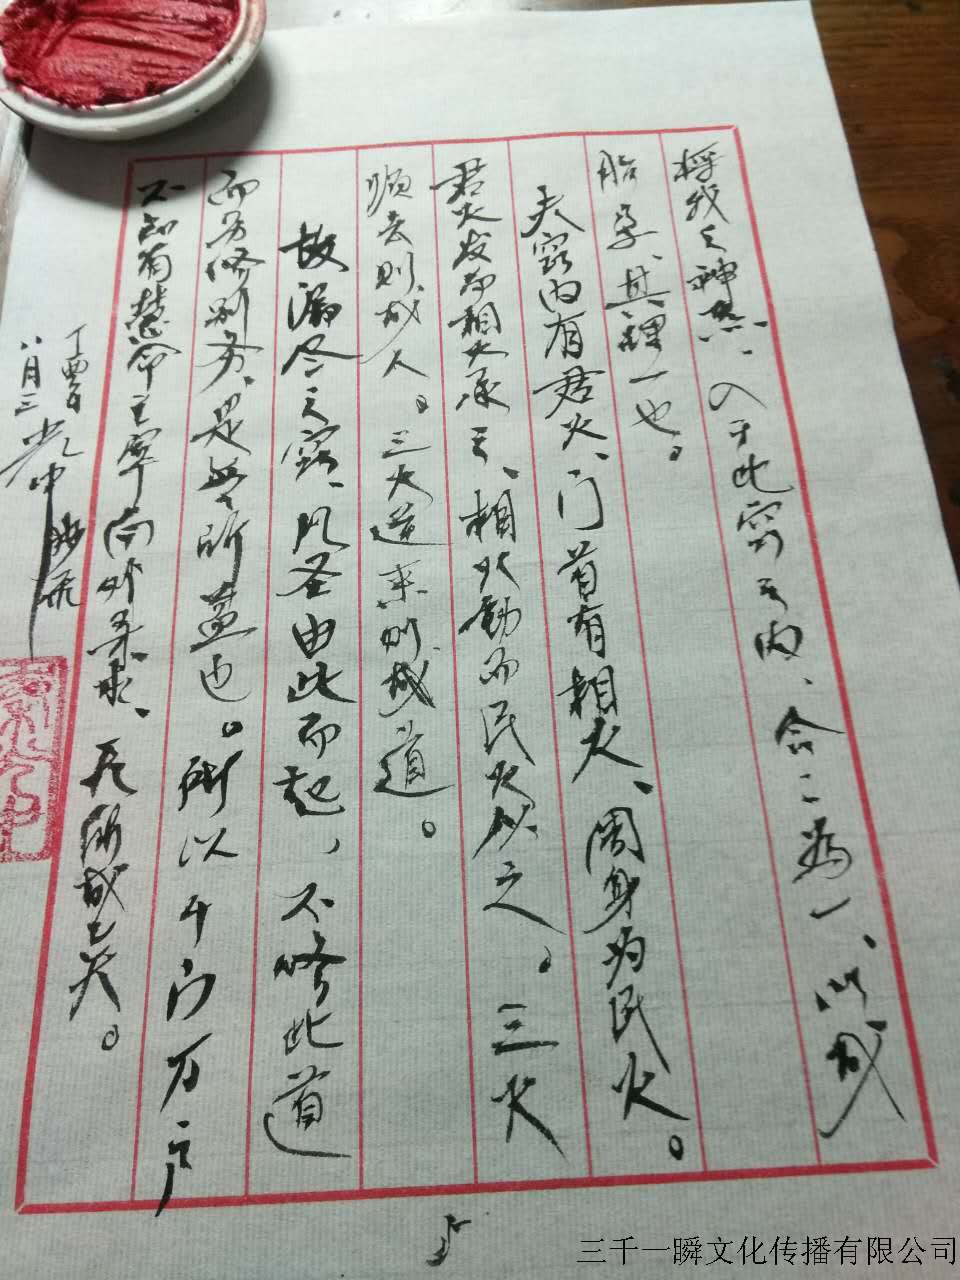 将我之神炁、入于此窍之内、合二为一、以成
胎孕、其理一也。
夫窍内有君火、门首有相火、周身为民火。
君火发而相火承之、相火动而民火从之。三火
顺去则成人。三火逆来则成道。
故漏尽之窍、凡圣由此而起，不修此道
而另修别务、是无所益也。所以千门万户
不知有慧命主宰向外寻求、无所成已矣。
丁酉
八月三
5
三千一瞬文化传播有限公司